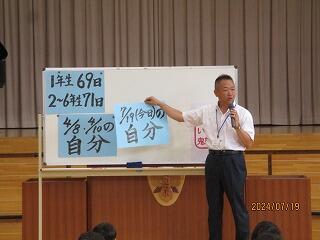 1年生69日
2~6年生71日
4/8.4/10の
自分
7/19(今日)の
自分
い
2024/07/19